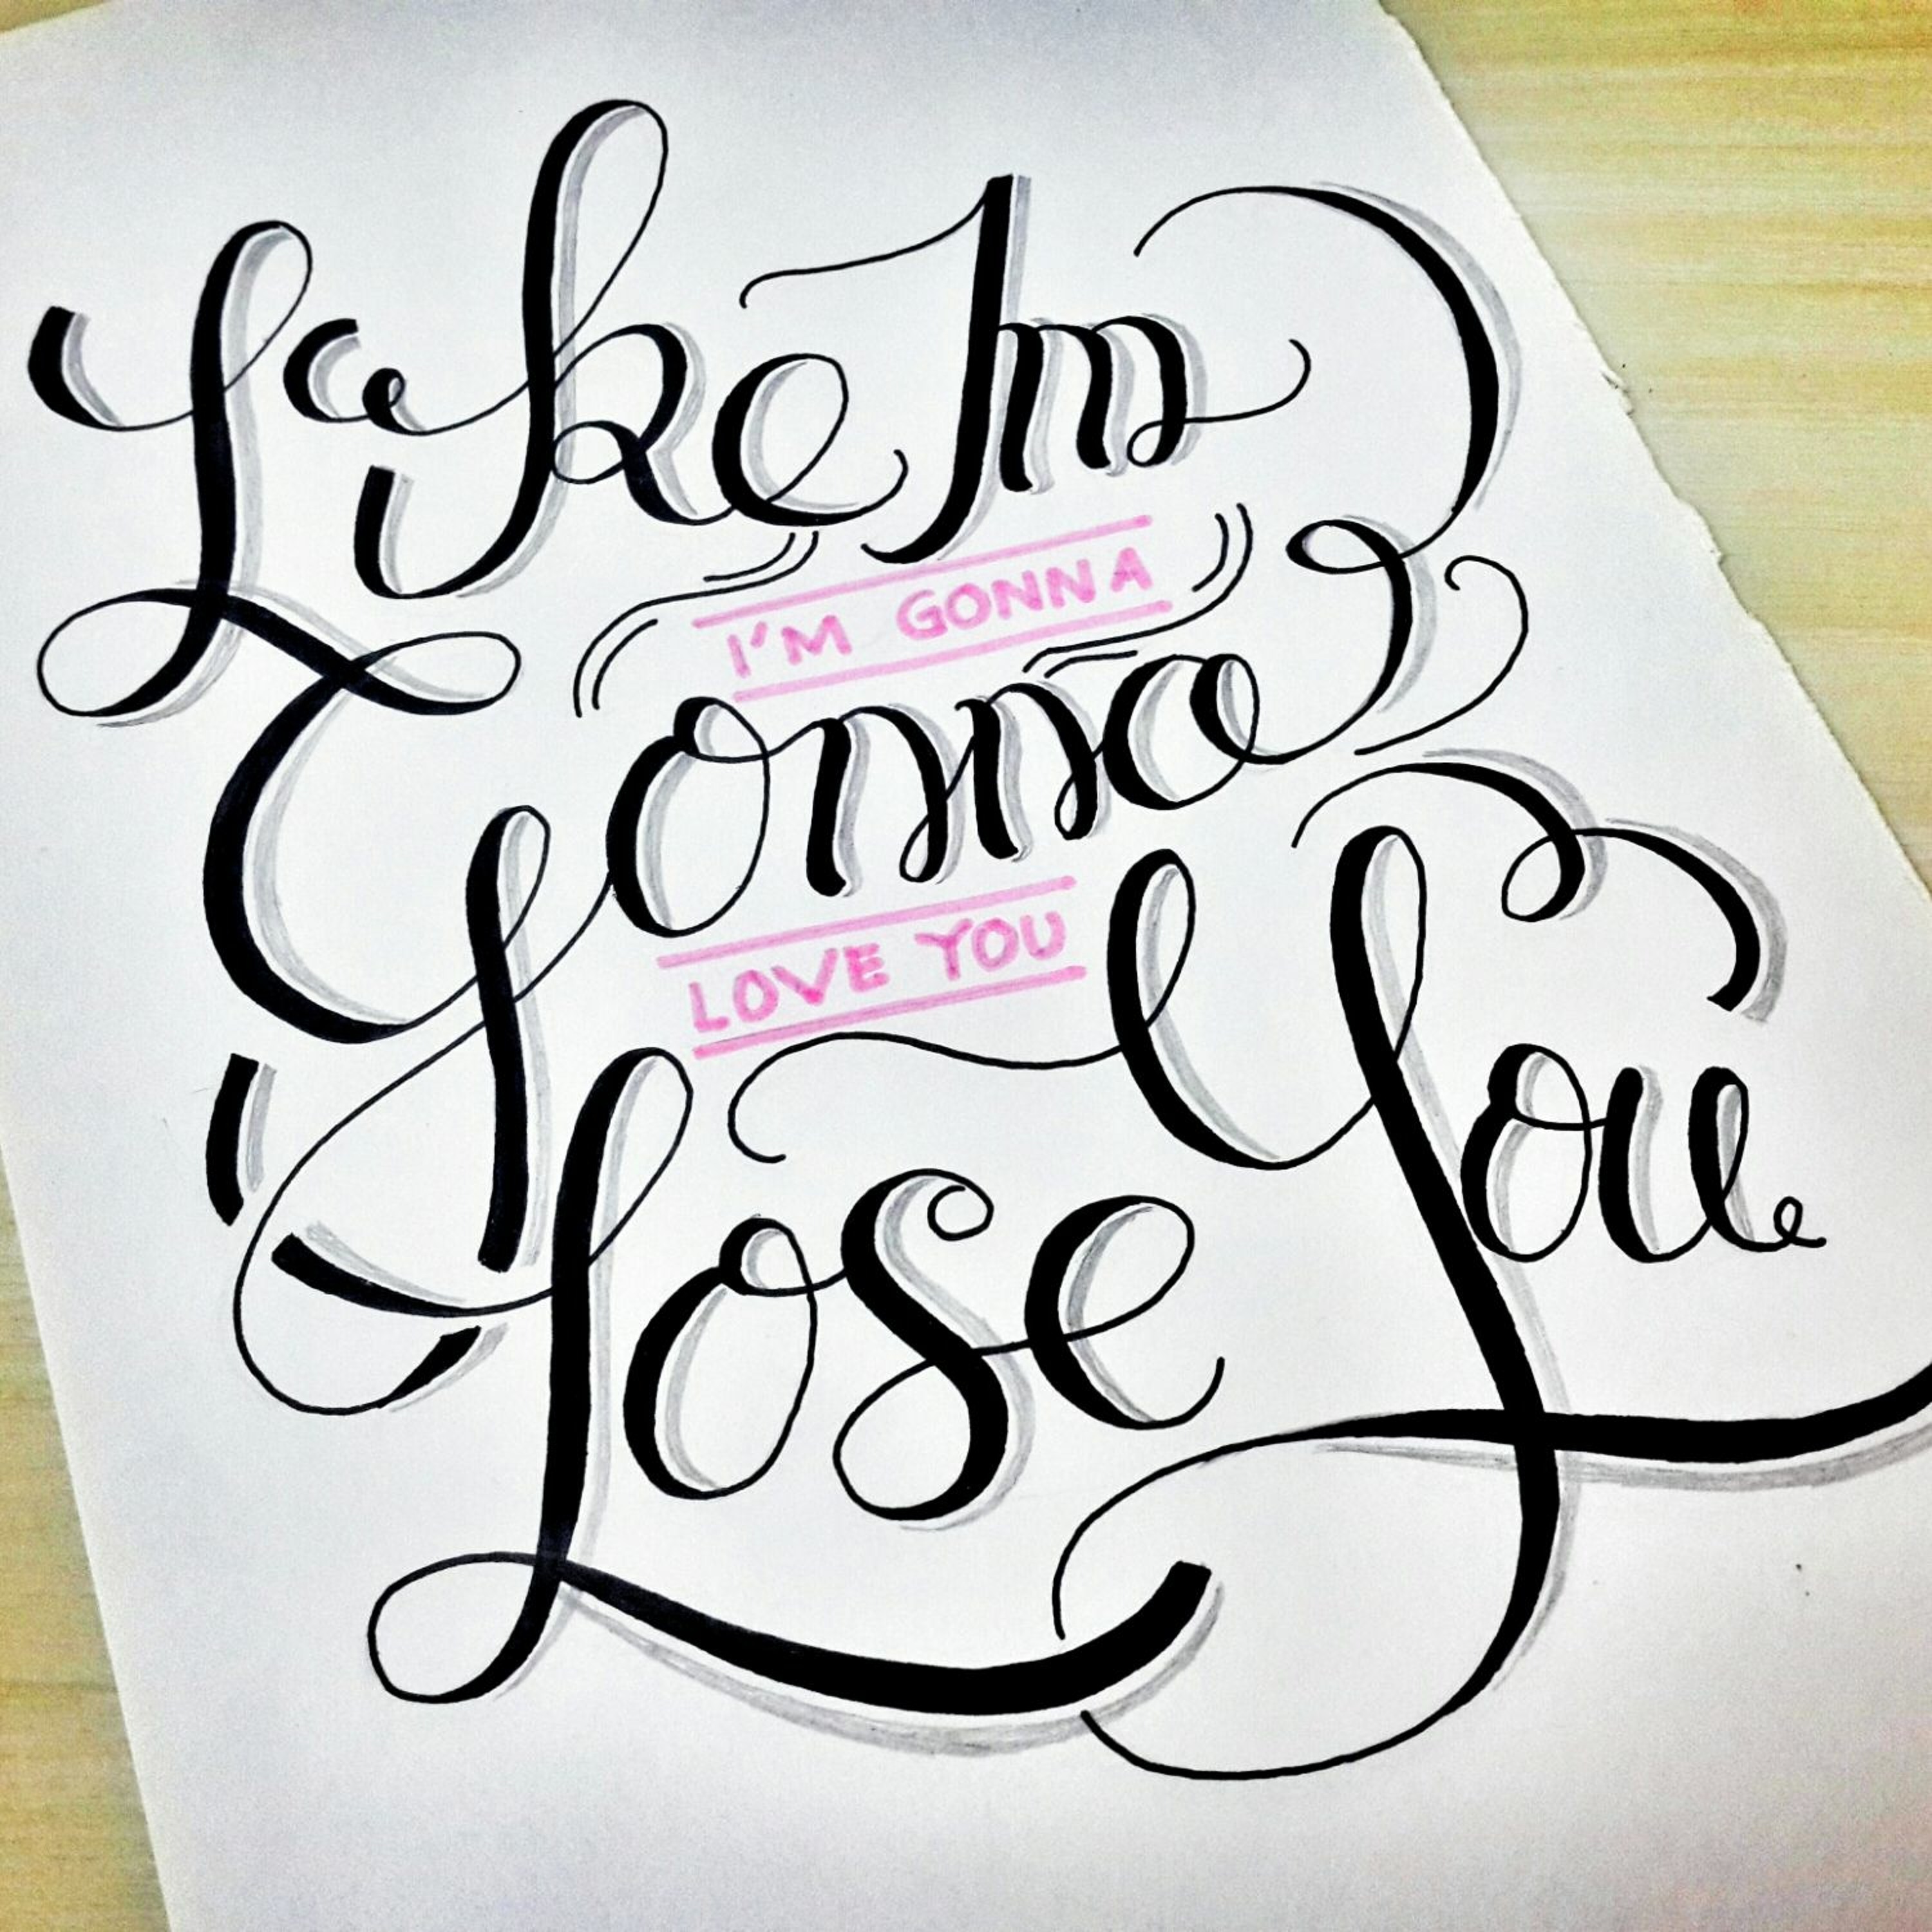 Like Im
I'M GONNA
Gonna
LOVE YOU
Lose You